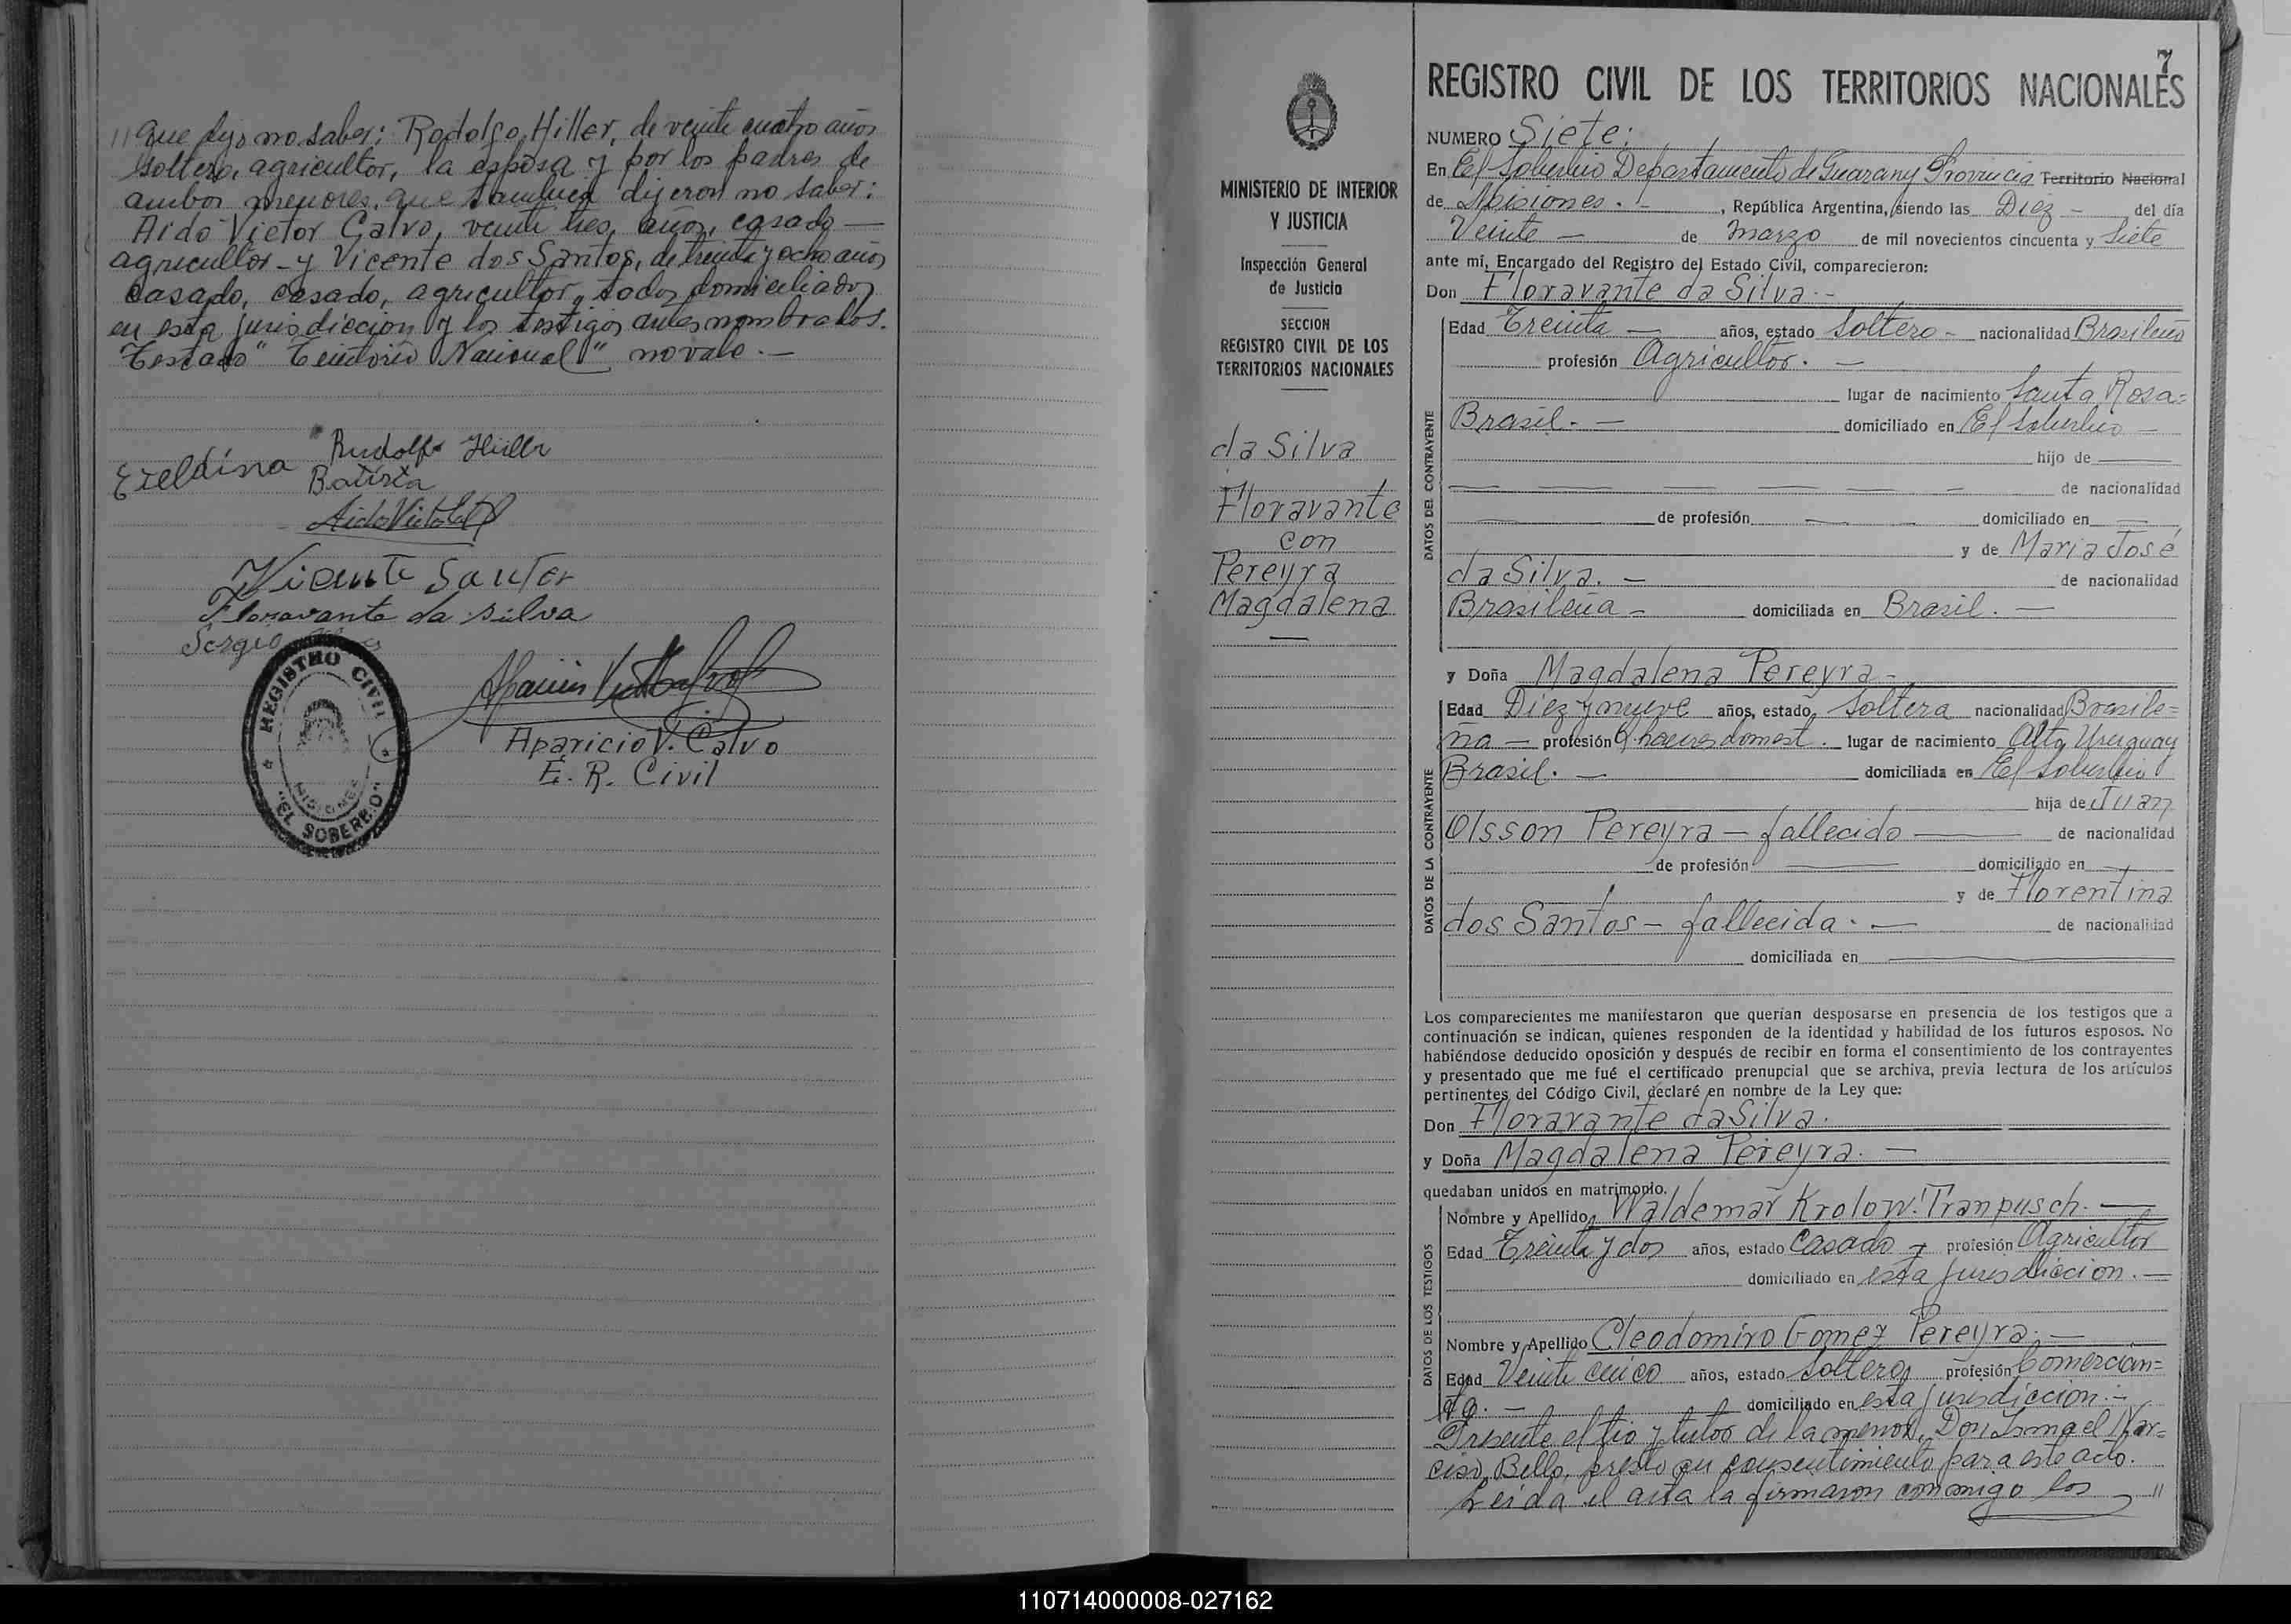 // que dijo no saber: Rodolfo Hiller, de veinte cuatro años
soltero, agricultor, la esposa y por los padres de
ambos menores, que tambien dijeron no saber:
Aido Victor Calvo, veinte tres años, casado —
agricultor - y Vicente dos Santos, de treinta y ocho años
casado, casado, agricultor, todos domiciliados
en esta jurisdiccion y los testigos antes nombrados.
Testado "Territorio Nacional" no vale. —
Rudolfo Hiller
Batista
Vicente Santos
Floravante da Silva
Sergio
REGISTRO CIVIL
MISIONES
"EL SOBERBIO"
Aparicio V. Calvo
E. R. Civil
MINISTERIO DE INTERIOR
Y JUSTICIA
Inspección General
de Justicia
SECCION
REGISTRO CIVIL DE LOS
TERRITORIOS NACIONALES
da Silva
Floravante
con
Pereyra
Magdalena
7
REGISTRO CIVIL DE LOS TERRITORIOS NACIONALES
NUMERO Siete:
En El Soberbio Departamento de Guarany Provincia Territorio Nacional
de Misiones. - , República Argentina, siendo las Diez - del día
Veinte - de Marzo de mil novecientos cincuenta y Siete
ante mí, Encargado del Registro del Estado Civil, comparecieron:
Don Floravante da Silva. -
DATOS DEL CONTRAYENTE
Edad Treinta — años, estado Soltero - nacionalidad Brasileño
profesión Agricultor. —
lugar de nacimiento Santa Rosa=
Brasil. — domiciliado en El Soberbio —
hijo de
de nacionalidad
de profesión domiciliado en
y de Maria José
da Silva. — de nacionalidad
Brasileña - domiciliada en Brasil. —
y Doña Magdalena Pereyra -
DATOS DE LA CONTRAYENTE
Edad Diez y nueve años, estado Soltera nacionalidad Brasile=
ña — profesión Q/haceres domest. lugar de nacimiento Alto Uruguay
Brasil. — domiciliada en El Soberbio
hija de Juan
Olsson Pereyra — fallecido — de nacionalidad
de profesión domiciliado en
y de Florentina
dos Santos - fallecida. — de nacionalidad
domiciliada en
Los comparecientes me manifestaron que querían desposarse en presencia de los testigos que a
continuación se indican, quienes responden de la identidad y habilidad de los futuros esposos. No
habiéndose deducido oposición y después de recibir en forma el consentimiento de los contrayentes
y presentado que me fué el certificado prenupcial que se archiva, previa lectura de los artículos
pertinentes del Código Civil, declaré en nombre de la Ley que:
Don Floravante da Silva.
y Doña Magdalena Pereyra. —
quedaban unidos en matrimonio.
DATOS DE LOS TESTIGOS
Nombre y Apellido Waldemar Krolow Tranpusch. —
Edad Treinta y dos años, estado Casado - profesión Agricultor
domiciliado en esta jurisdiccion. —
Nombre y Apellido Cleodomiro Gomez Pereyra. —
Edad Veinte cinco años, estado Soltero, profesión Comercian=
te. — domiciliado en esta jurisdiccion. -
Presente el tio y tutor de la menor, Don Ismael Nar=
ciso Bello, prestó su consentimiento para este acto.
Leida el acta la firmaron conmigo los //
110714000008-027162